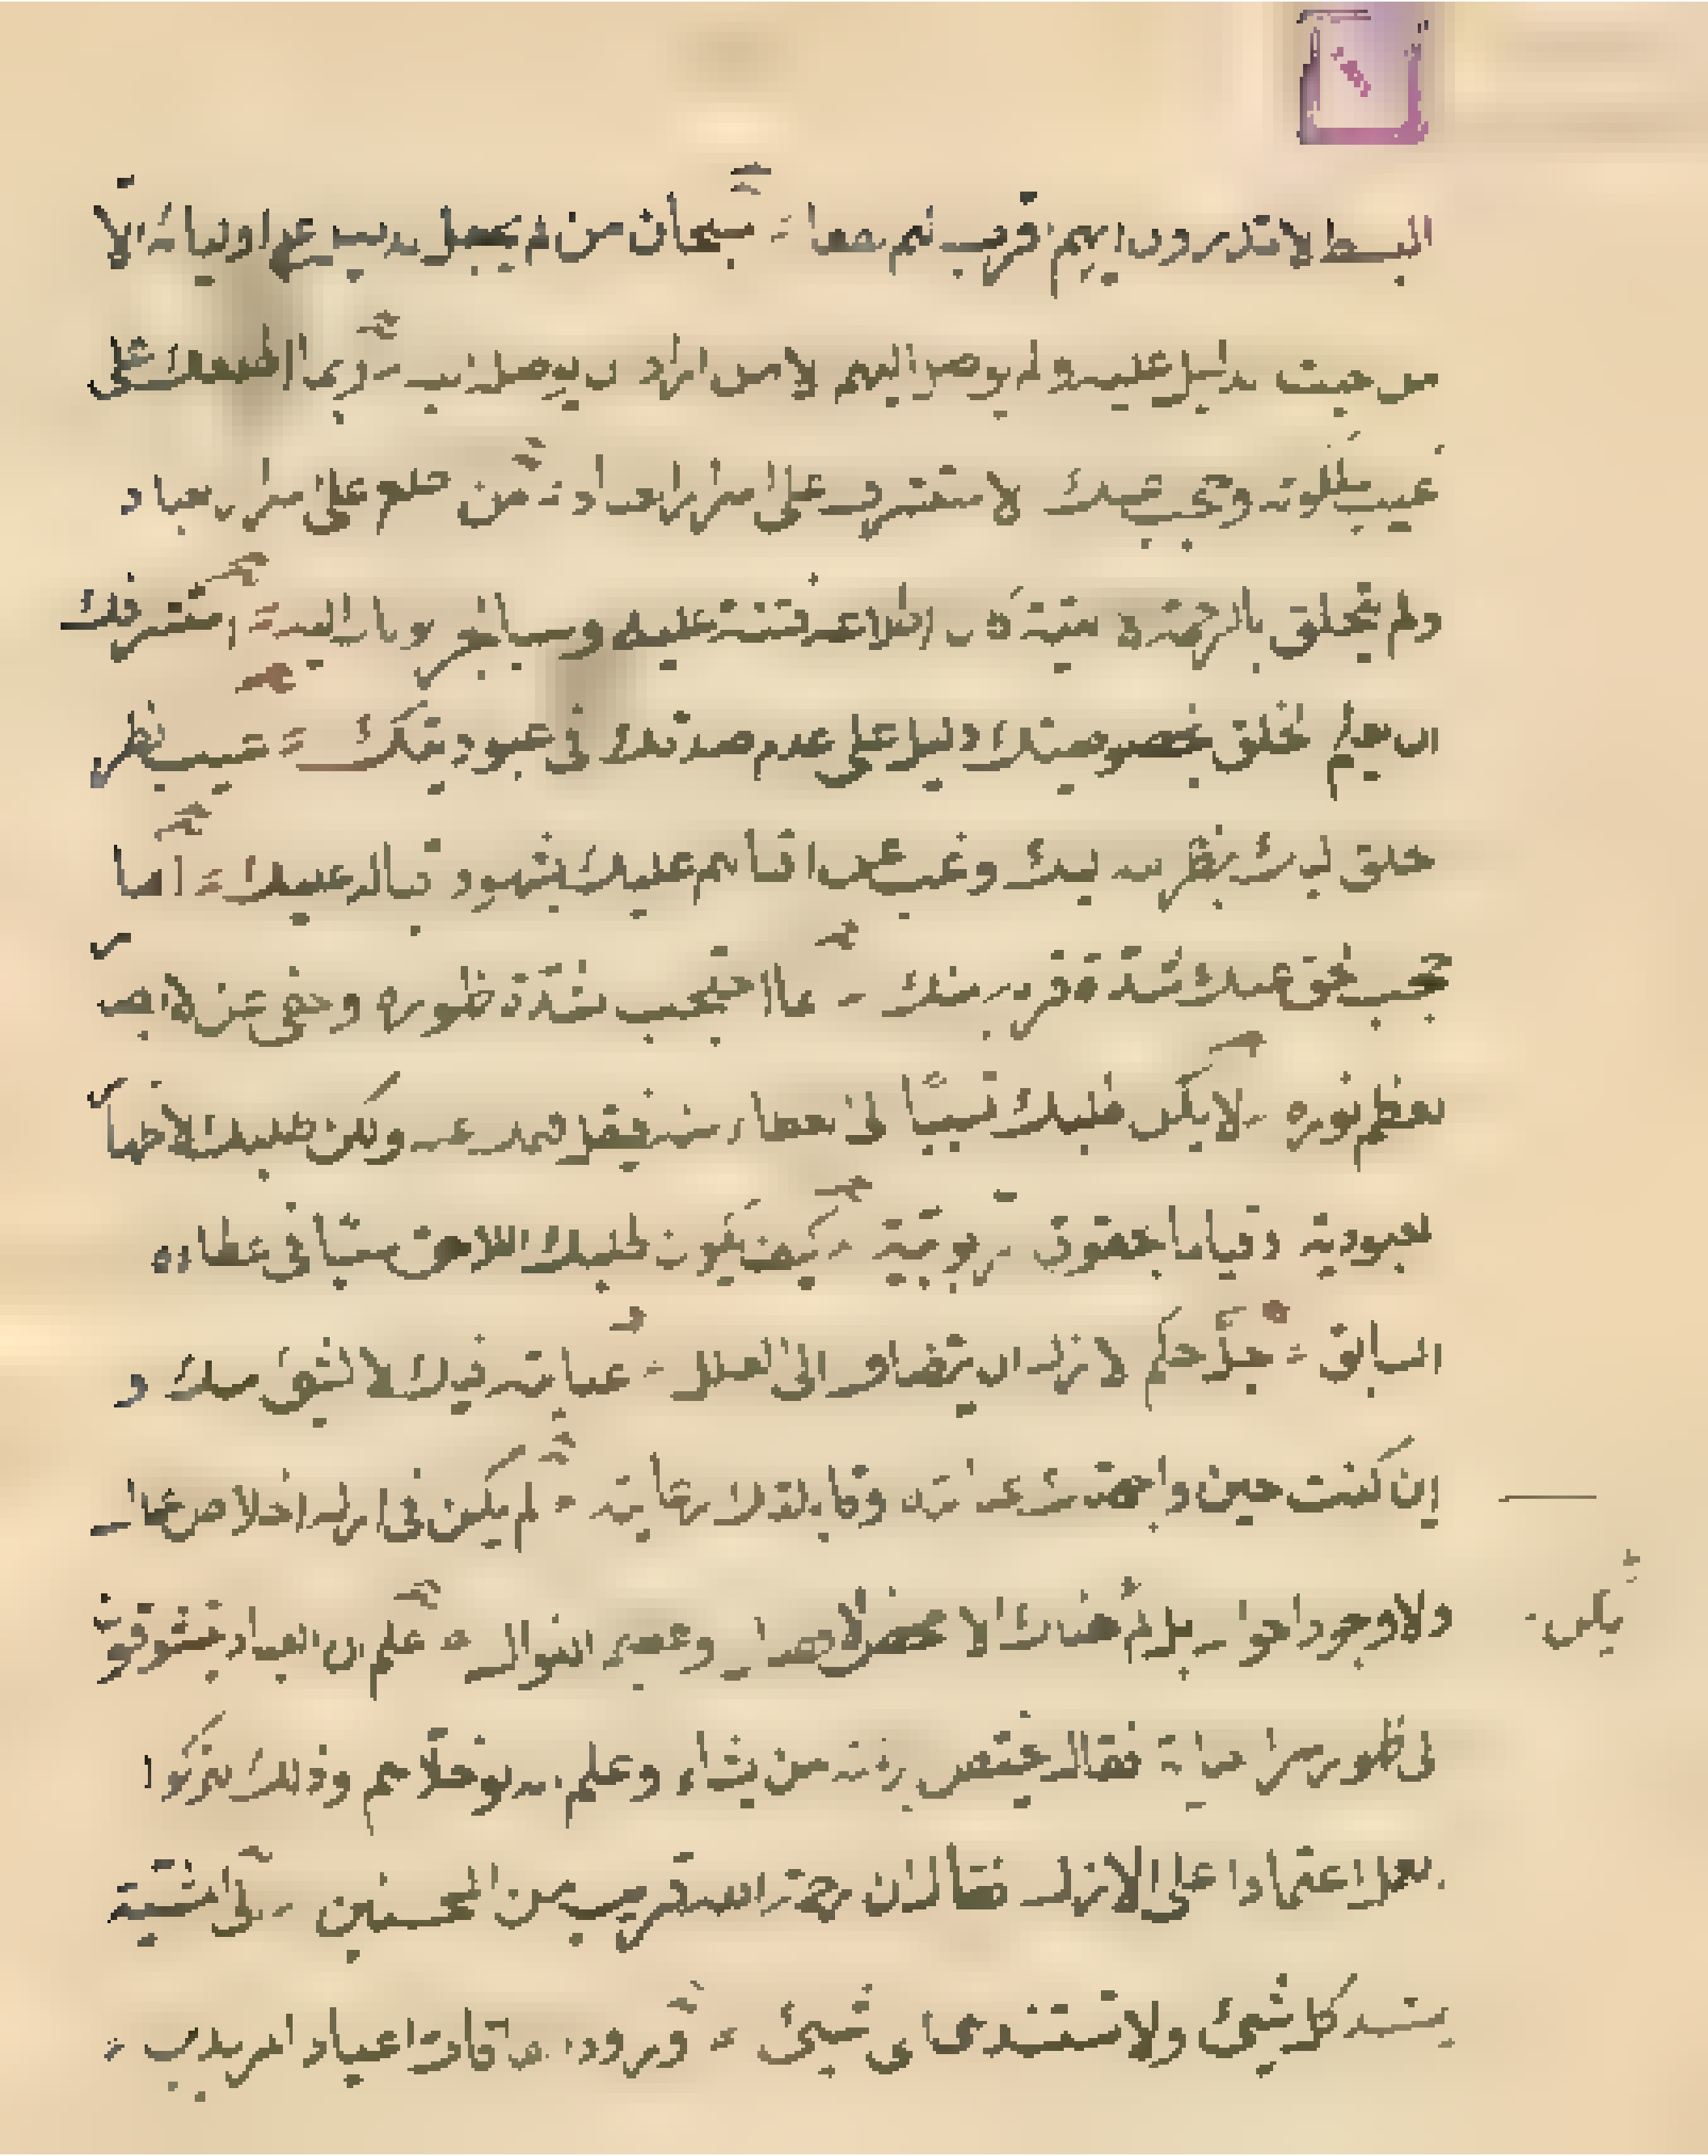 البسط لا تدرون ايهم اقرب لكم نفعا سبحان من لم يجعل الدليل على اوليائه الا
من حيث الدليل عليه ولم يوصل اليهم الا من اراد ان يوصله اليه ربما اطلعك على
غيب ملكوته وحجب عنك الاستشراف على اسرار العباد من اطلع على اسرار العباد
ولم يتخلق بالرحمة الالهية كان اطلاعه فتنة عليه وسببا لجر الوبال اليه استشرافك
ان يعلم الخلق بخصوصيتك دليل على عدم صدقك في عبوديتك غيب نظر
الخلق اليك بنظر الله اليك وغب عن اقبالهم عليك بشهود اقباله عليك انما
حجب الحق عنك شدة قربه منك انما احتجب لشدة ظهوره وخفي عن الابصار
لعظم نوره لا يكن طلبك تسببا الى العطاء منه فيقل فهمك عنه وليكن طلبك لاظهار
العبودية وقياما بحقوق الربوبية كيف يكون طلبك اللاحق سببا في عطائه
السابق جل حكم الازل ان ينضاف الى العلل عنايته فيك لا لشئ منك و
اين كنت حين واجهتك عنايته وقابلتك رعايته لم يكن في ازله اخلاص اعمال
ولا وجود احوال بل لم يكن هناك الا محض الافضال وعظيم النوال علم ان العباد يتشوفون
يكن
الى ظهور سر العناية فقال يختص برحمته من يشاء وعلم انه لو خلاهم وذلك لتركوا
العمل اعتمادا على الازل فقال ان رحمة الله قريب من المحسنين الى المشيئة
يستند كل شيئ ولا تستند هي الى شيئ ورود الفاقات اعياد المريدين